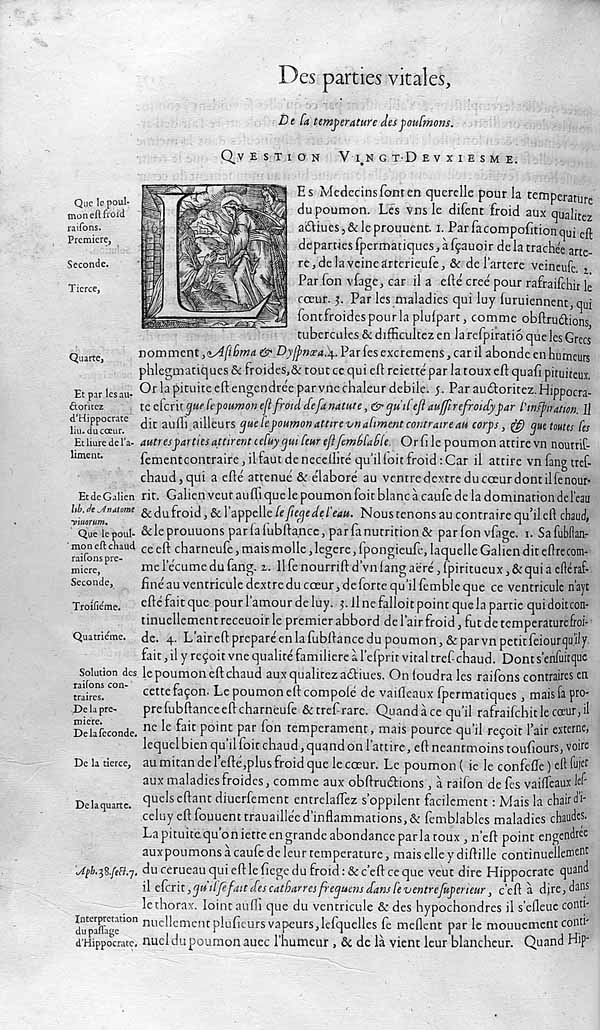 Des parties vitales,
De ſa temperature des poulmons.
QVESTION VINGT-DEVXIESME.
Que le poul-
mon eſt froid
raiſons.
Premiere,
Seconde.
Tierce,
Quarte,
Et par les au-
ctoritez
d'Hippocrate
liu. du cœur.
Et liure de l'a-
liment.
Et de Galien
lib. de Anatome
viuorum.
Que le poul-
mon eſt chaud
raiſons pre-
miere,
Seconde,
Troiſiéme.
Quatriéme.
Solution des
raiſons con-
traires.
De la pre-
miere.
De la ſeconde.
De la tierce,
De la quarte.
Aph. 38. ſect. 7.
Interpretation
du paſſage
d'Hippocrate.
LEs Medecins ſont en querelle pour la temperature
du poumon. Les vns le diſent froid aux qualitez
actiues, & le prouuent. 1. Par ſa compoſition qui eſt
de parties ſpermatiques, à ſçauoir de la trachée arte-
re, de la veine arterieuſe, & de l'artere veineuſe. 2.
Par ſon vſage, car il a eſté creé pour rafraiſchir le
cœur. 3. Par les maladies qui luy ſuruiennent, qui
ſont froides pour la pluſpart, comme obſtructions,
tubercules & difficultez en la reſpiratiõ que les Grecs
nomment, Aſthma & Dyſpnœa. 4. Par ſes excremens, car il abonde en humeurs
phlegmatiques & froides, & tout ce qui eſt reietté par la toux eſt quaſi pituiteux.
Or la pituite eſt engendrée par vne chaleur debile. 5. Par auctoritez. Hippocra-
te eſcrit que le poumon eſt froid de ſa nature, & qu'il eſt auſſi refroidy par l'inſpiration. Il
dit auſſi ailleurs que le poumon attire vn aliment contraire au corps, & que toutes les
autres parties attirent celuy qui leur eſt ſemblable. Or ſi le poumon attire vn nourriſ-
ſement contraire, il faut de neceſſité qu'il ſoit froid: Car il attire vn ſang treſ-
chaud, qui a eſté attenué & élaboré au ventre dextre du cœur dont il ſe nour-
rit. Galien veut auſſi que le poumon ſoit blanc à cauſe de la domination de l'eau
& du froid, & l'appelle le ſiege de l'eau. Nous tenons au contraire qu'il eſt chaud,
& le prouuons par ſa ſubſtance, par ſa nutrition & par ſon vſage. 1. Sa ſubſtan-
ce eſt charneuſe, mais molle, legere, ſpongieuſe, laquelle Galien dit eſtre com-
me l'écume du ſang. 2. Il ſe nourriſt d'vn ſang aëré, ſpiritueux, & qui a eſté raf-
finé au ventricule dextre du cœur, de ſorte qu'il ſemble que ce ventricule n'ayt
eſté fait que pour l'amour de luy. 3. Il ne falloit point que la partie qui doit con-
tinuellement receuoir le premier abbord de l'air froid, fut de temperature froi-
de. 4. L'air eſt preparé en la ſubſtance du poumon, & par vn petit ſeiour qu'il y
fait, il y reçoit vne qualité familiere à l'eſprit vital treſ-chaud. Dont s'enſuit que
le poumon eſt chaud aux qualitez actiues. On ſoudra les raiſons contraires en
cette façon. Le poumon eſt compoſé de vaiſſeaux ſpermatiques, mais ſa pro-
pre ſubſtance eſt charneuſe & treſ-rare. Quand à ce qu'il rafraiſchit le cœur, il
ne le fait point par ſon temperament, mais pource qu'il reçoit l'air externe,
lequel bien qu'il ſoit chaud, quand on l'attire, eſt neantmoins touſiours, voire
au mitan de l'eſté, plus froid que le cœur. Le poumon (ie le confeſſe) eſt ſujet
aux maladies froides, comme aux obſtructions, à raiſon de ſes vaiſſeaux leſ-
quels eſtant diuerſement entrelaſſez s'oppilent facilement: Mais la chair d'i-
celuy eſt ſouuent trauaillée d'inflammations, & ſemblables maladies chaudes.
La pituite qu'on iette en grande abondance par la toux, n'eſt point engendrée
aux poumons à cauſe de leur temperature, mais elle y diſtille continuellement
du cerueau qui eſt le ſiege du froid: & c'eſt ce que veut dire Hippocrate quand
il eſcrit, qu'il ſe fait des catharres frequens dans le ventre ſuperieur, c'eſt à dire, dans
le thorax. Ioint auſſi que du ventricule & des hypochondres il s'eſleue conti-
nuellement pluſieurs vapeurs, leſquelles ſe meſlent par le mouuement conti-
nuel du poumon auec l'humeur, & de là vient leur blancheur. Quand Hip-